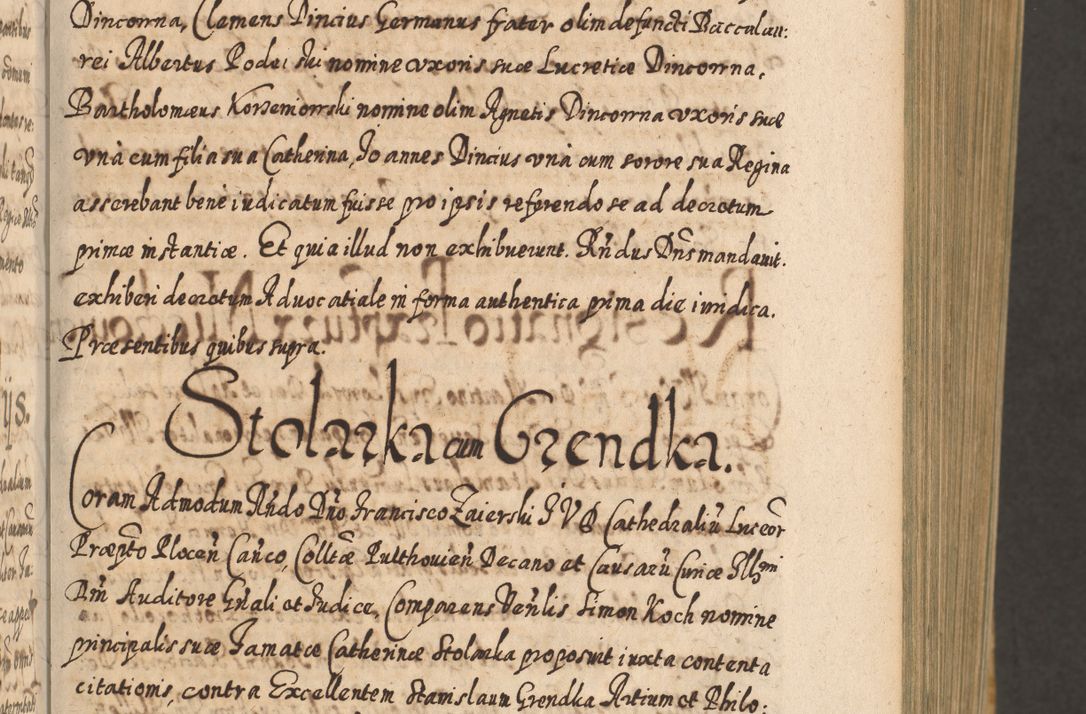 Dincowna, Clemens Dincius Germanus frater olim defuncti Baccalau:
rei Albertus Podei sui nomine uxoris suæ Lucretiæ Dincowna,
Bartholomæus Korzeniowski nomine olim Agnetis Dincowna uxoris suæ
vnà cum filia sua Catherina, Joannes Dincius vnà cum sorore sua Regina
asserebant bene iudicatum fuisse pro ipsis referendo se ad decretum
primæ instantiæ. Et quia illud non exhibuerunt. Rñdus Dñs mandauit.
exhiberi decretum Aduocatiale in forma authentica prima die iuridica.
Præsentibus quibus supra.
Stolarka cum Grendka.
Coram Admodum Rñdo Dño Francisco Zaierski J V D Cathedraliũ Luceor
Præpto Plocen̄ Can̄co, Colltæ Pulthouien̄ Decano et Causarũ Curiæ Illmi
Rm̄ Auditore Gn̄ali et Judice, Comparens Ven̄lis Simon Koch nomine
principalis suæ Famatæ Catherinæ Stolarka proposuit iuxta contenta
citationis, contra Excellentem Stanislaum Grendka Artium et Philo: